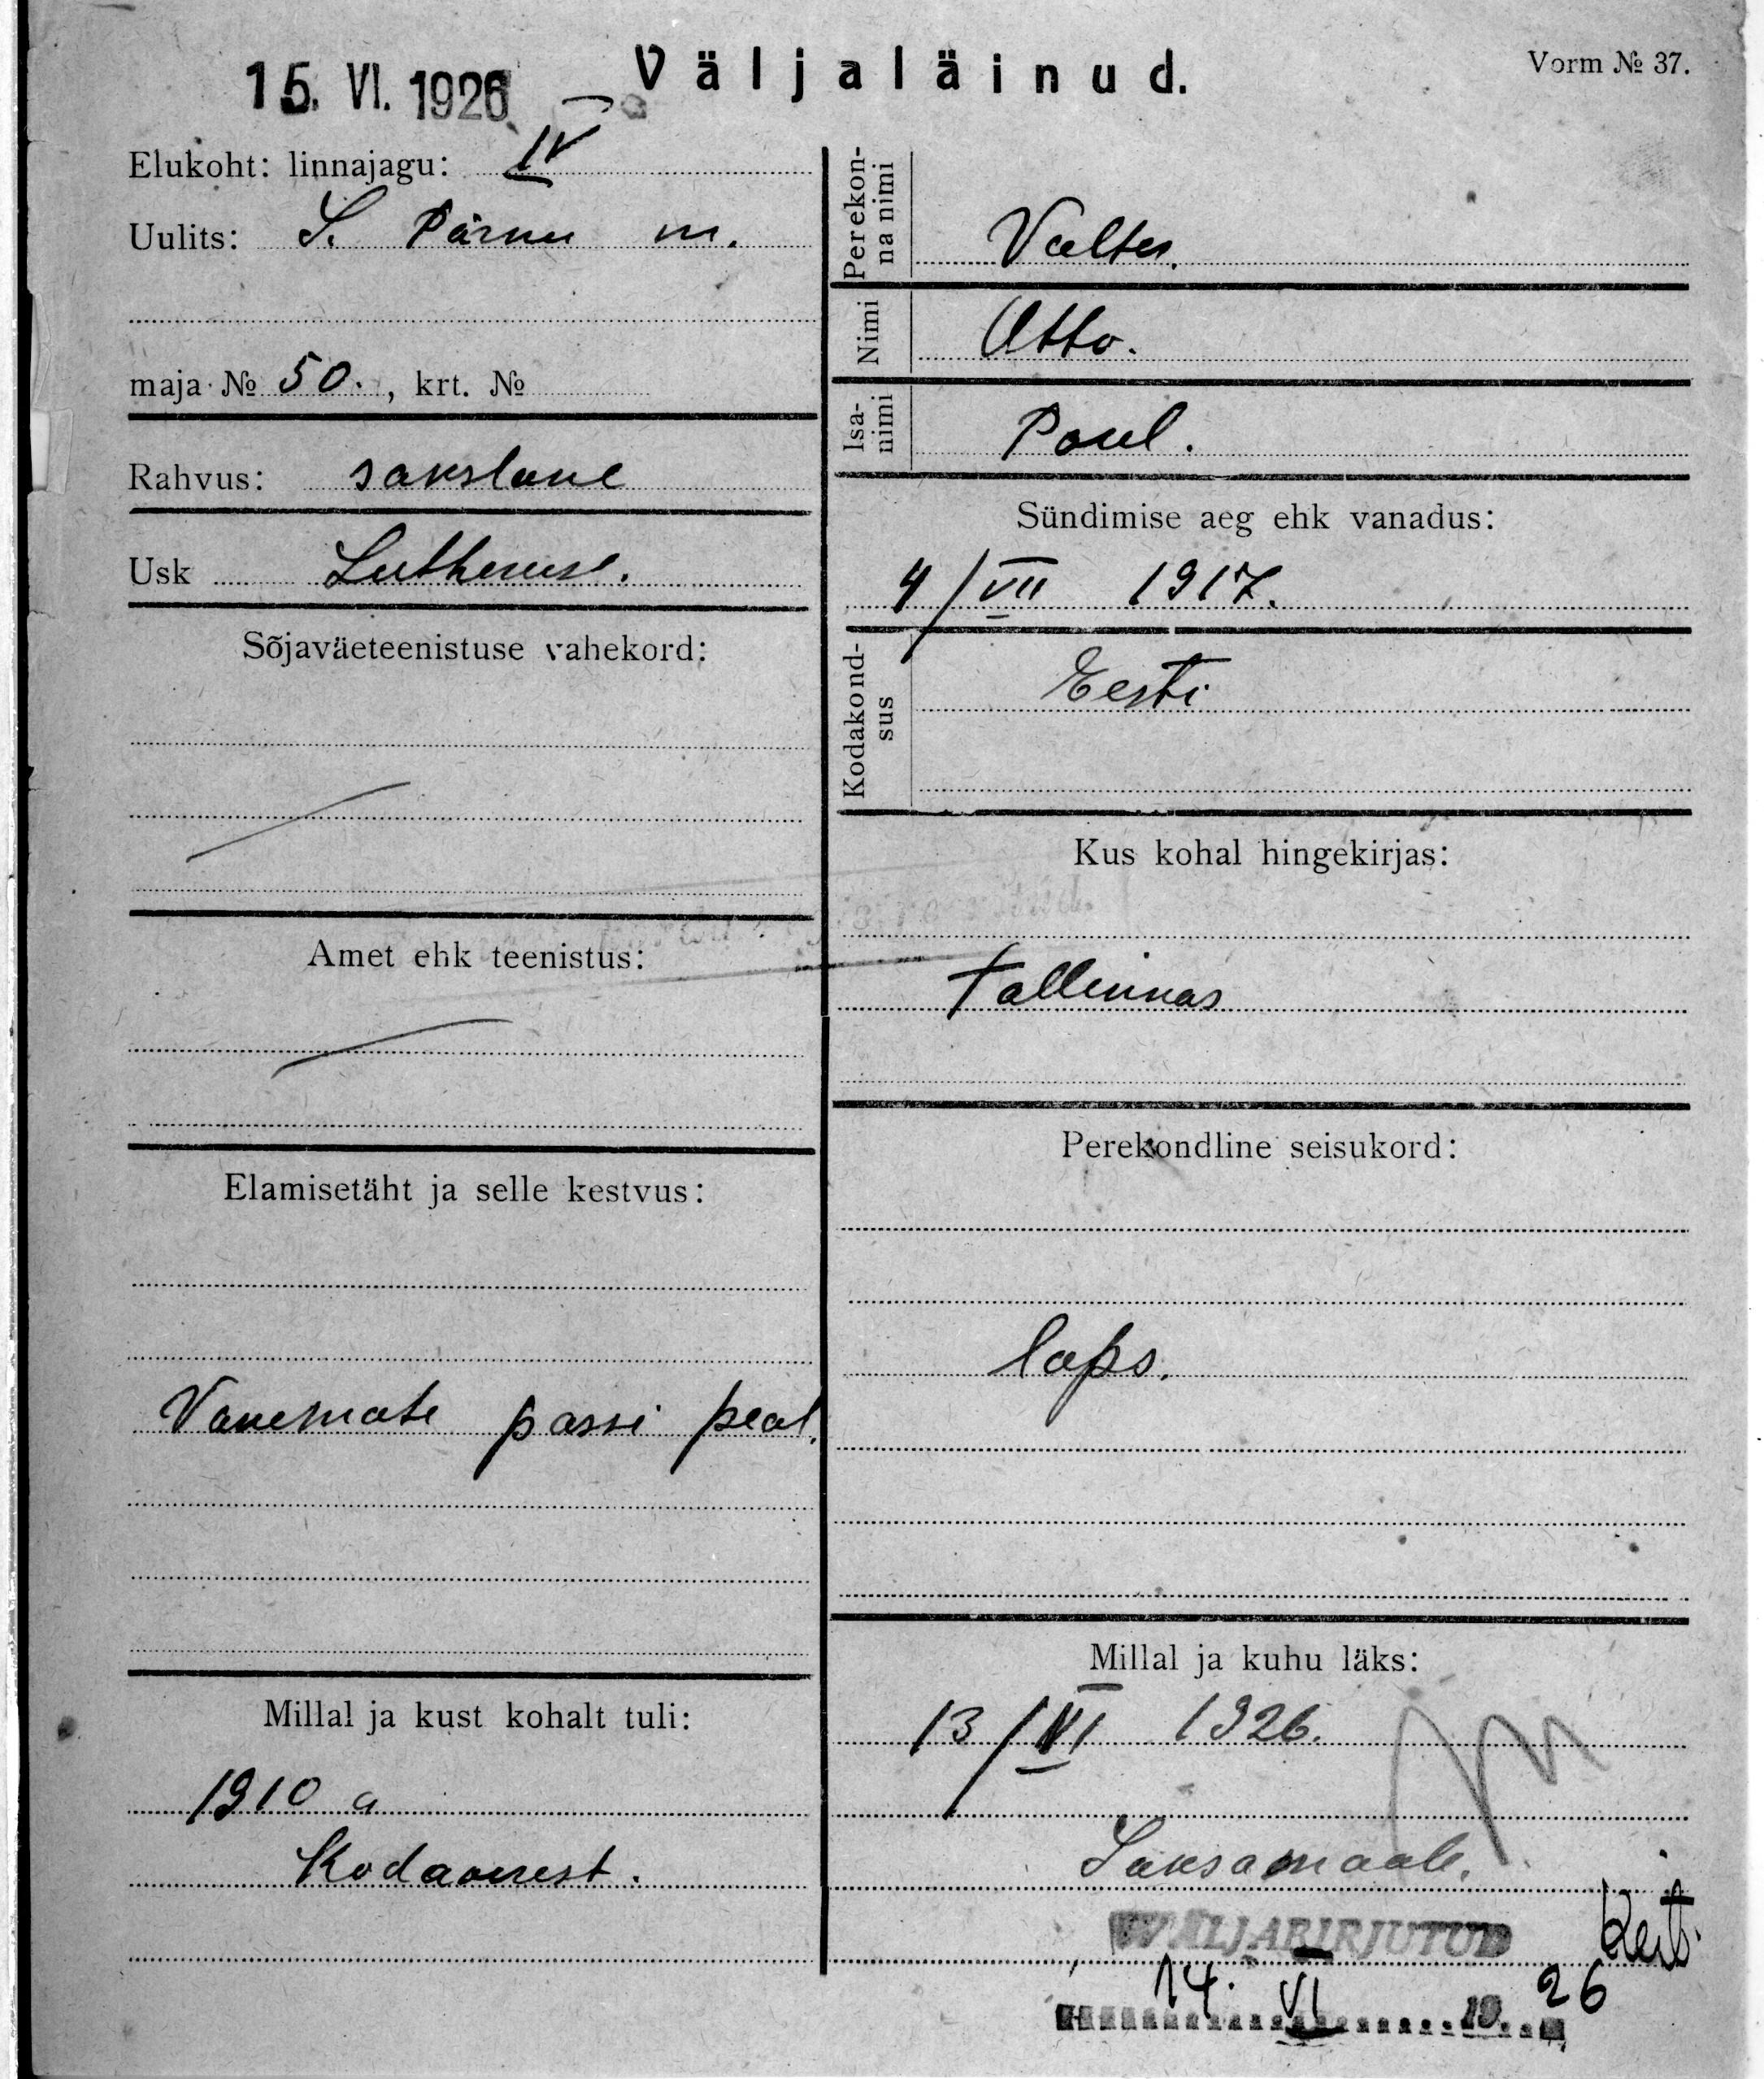 Väljaläinud.
Vorm № 37.
15. VI. 1926
Elukoht: linnajagu: IV
Uulits: S. Pärnu m.
maja № 50., krt. №
Rahvus: sakslane
Usk Lutheruse.
Sõjaväeteenistuse vahekord:
Amet ehk teenistus:
Elamisetäht ja selle kestvus:
Vanemate passi peal.
Millal ja kust kohalt tuli:
1910 a
Kodaverest.
Perekon-
na nimi
Valter.
Nimi
Otto.
Isa-
nimi
Paul.
Sündimise aeg ehk vanadus:
4/VII 1917.
Kodakond-
sus
Eesti
Kus kohal hingekirjas:
Tallinnas
Perekondline seisukord:
laps.
Millal ja kuhu läks:
13/VI 1926.
Saksamaale.
WÄLJAKIRJUTUD
14. VI 19 26